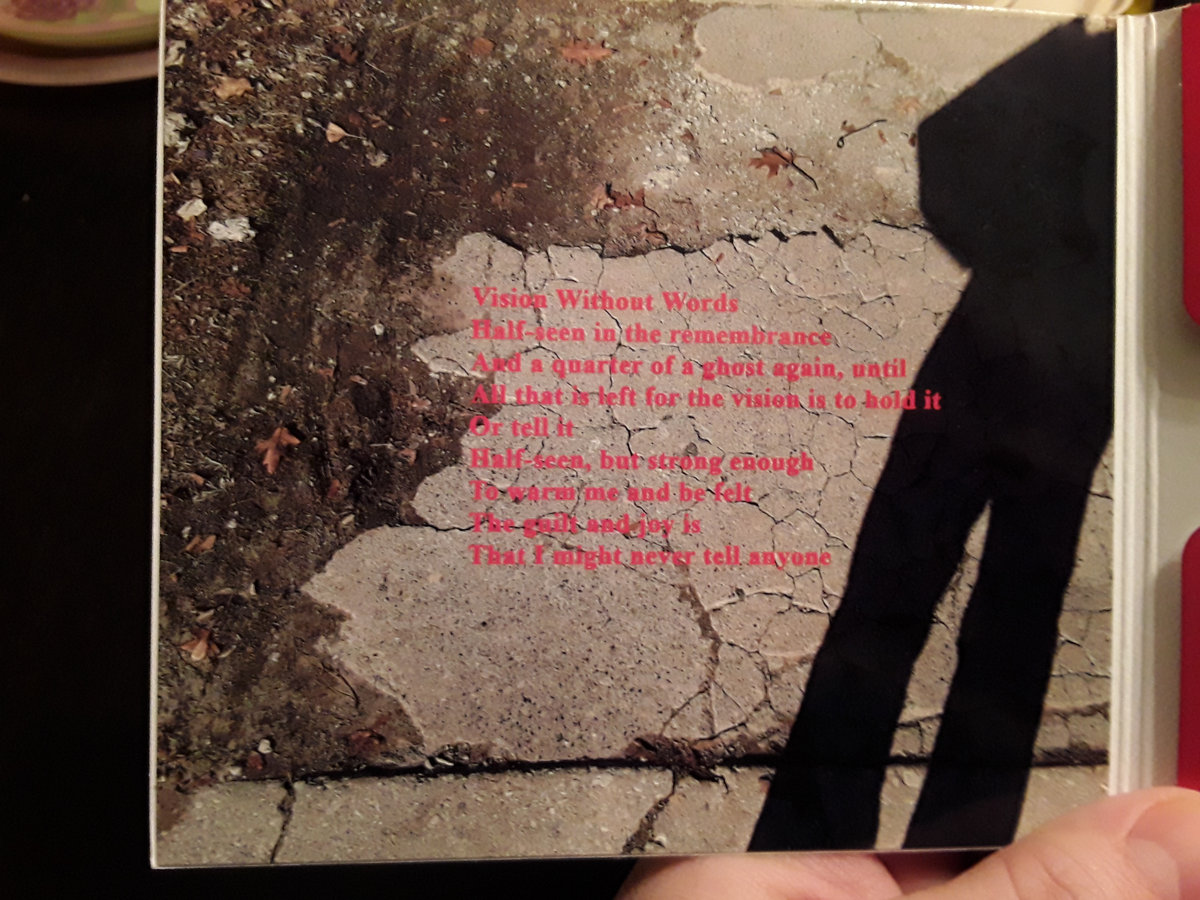 Vision Without Words
Half-seen in the remembrance
And a quarter of a ghost again, until
All that is left for the vision is to hold it
Or tell it
Half-seen, but strong enough
To warm me and be felt
The guilt and joy is
That I might never tell anyone